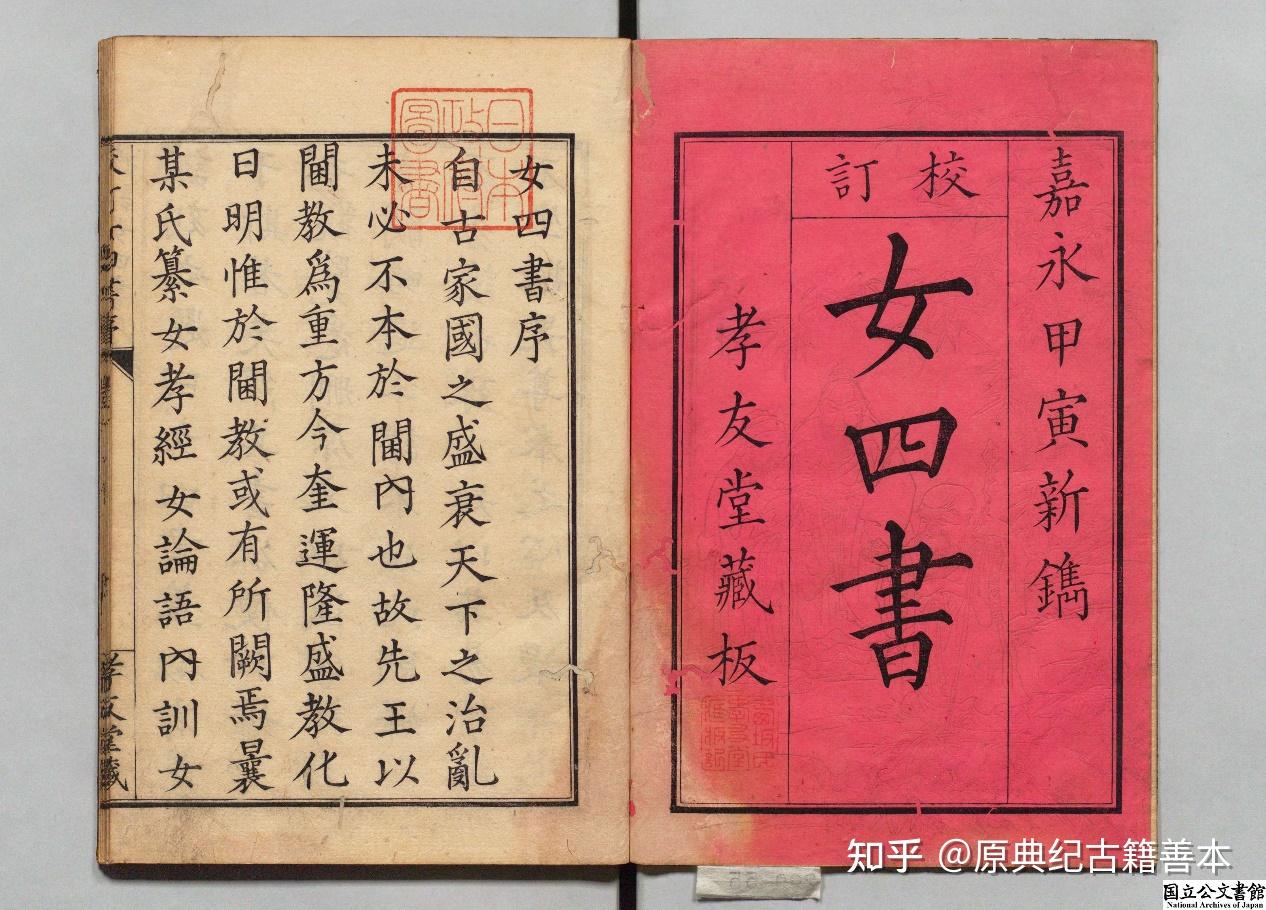 嘉永甲寅新鐫
校訂
女四書
孝友堂藏板
女四書序
自古家國之盛衰天下之治亂
未必不本於閫內也故先王以
閫教爲重方今奎運隆盛教化
日明惟於閫教或有所闕焉曩
某氏纂女孝經女論語內訓女
孝友堂藏
日本政府圖書
知乎 @原典纪古籍善本
国立公文書館
National Archives of Japan